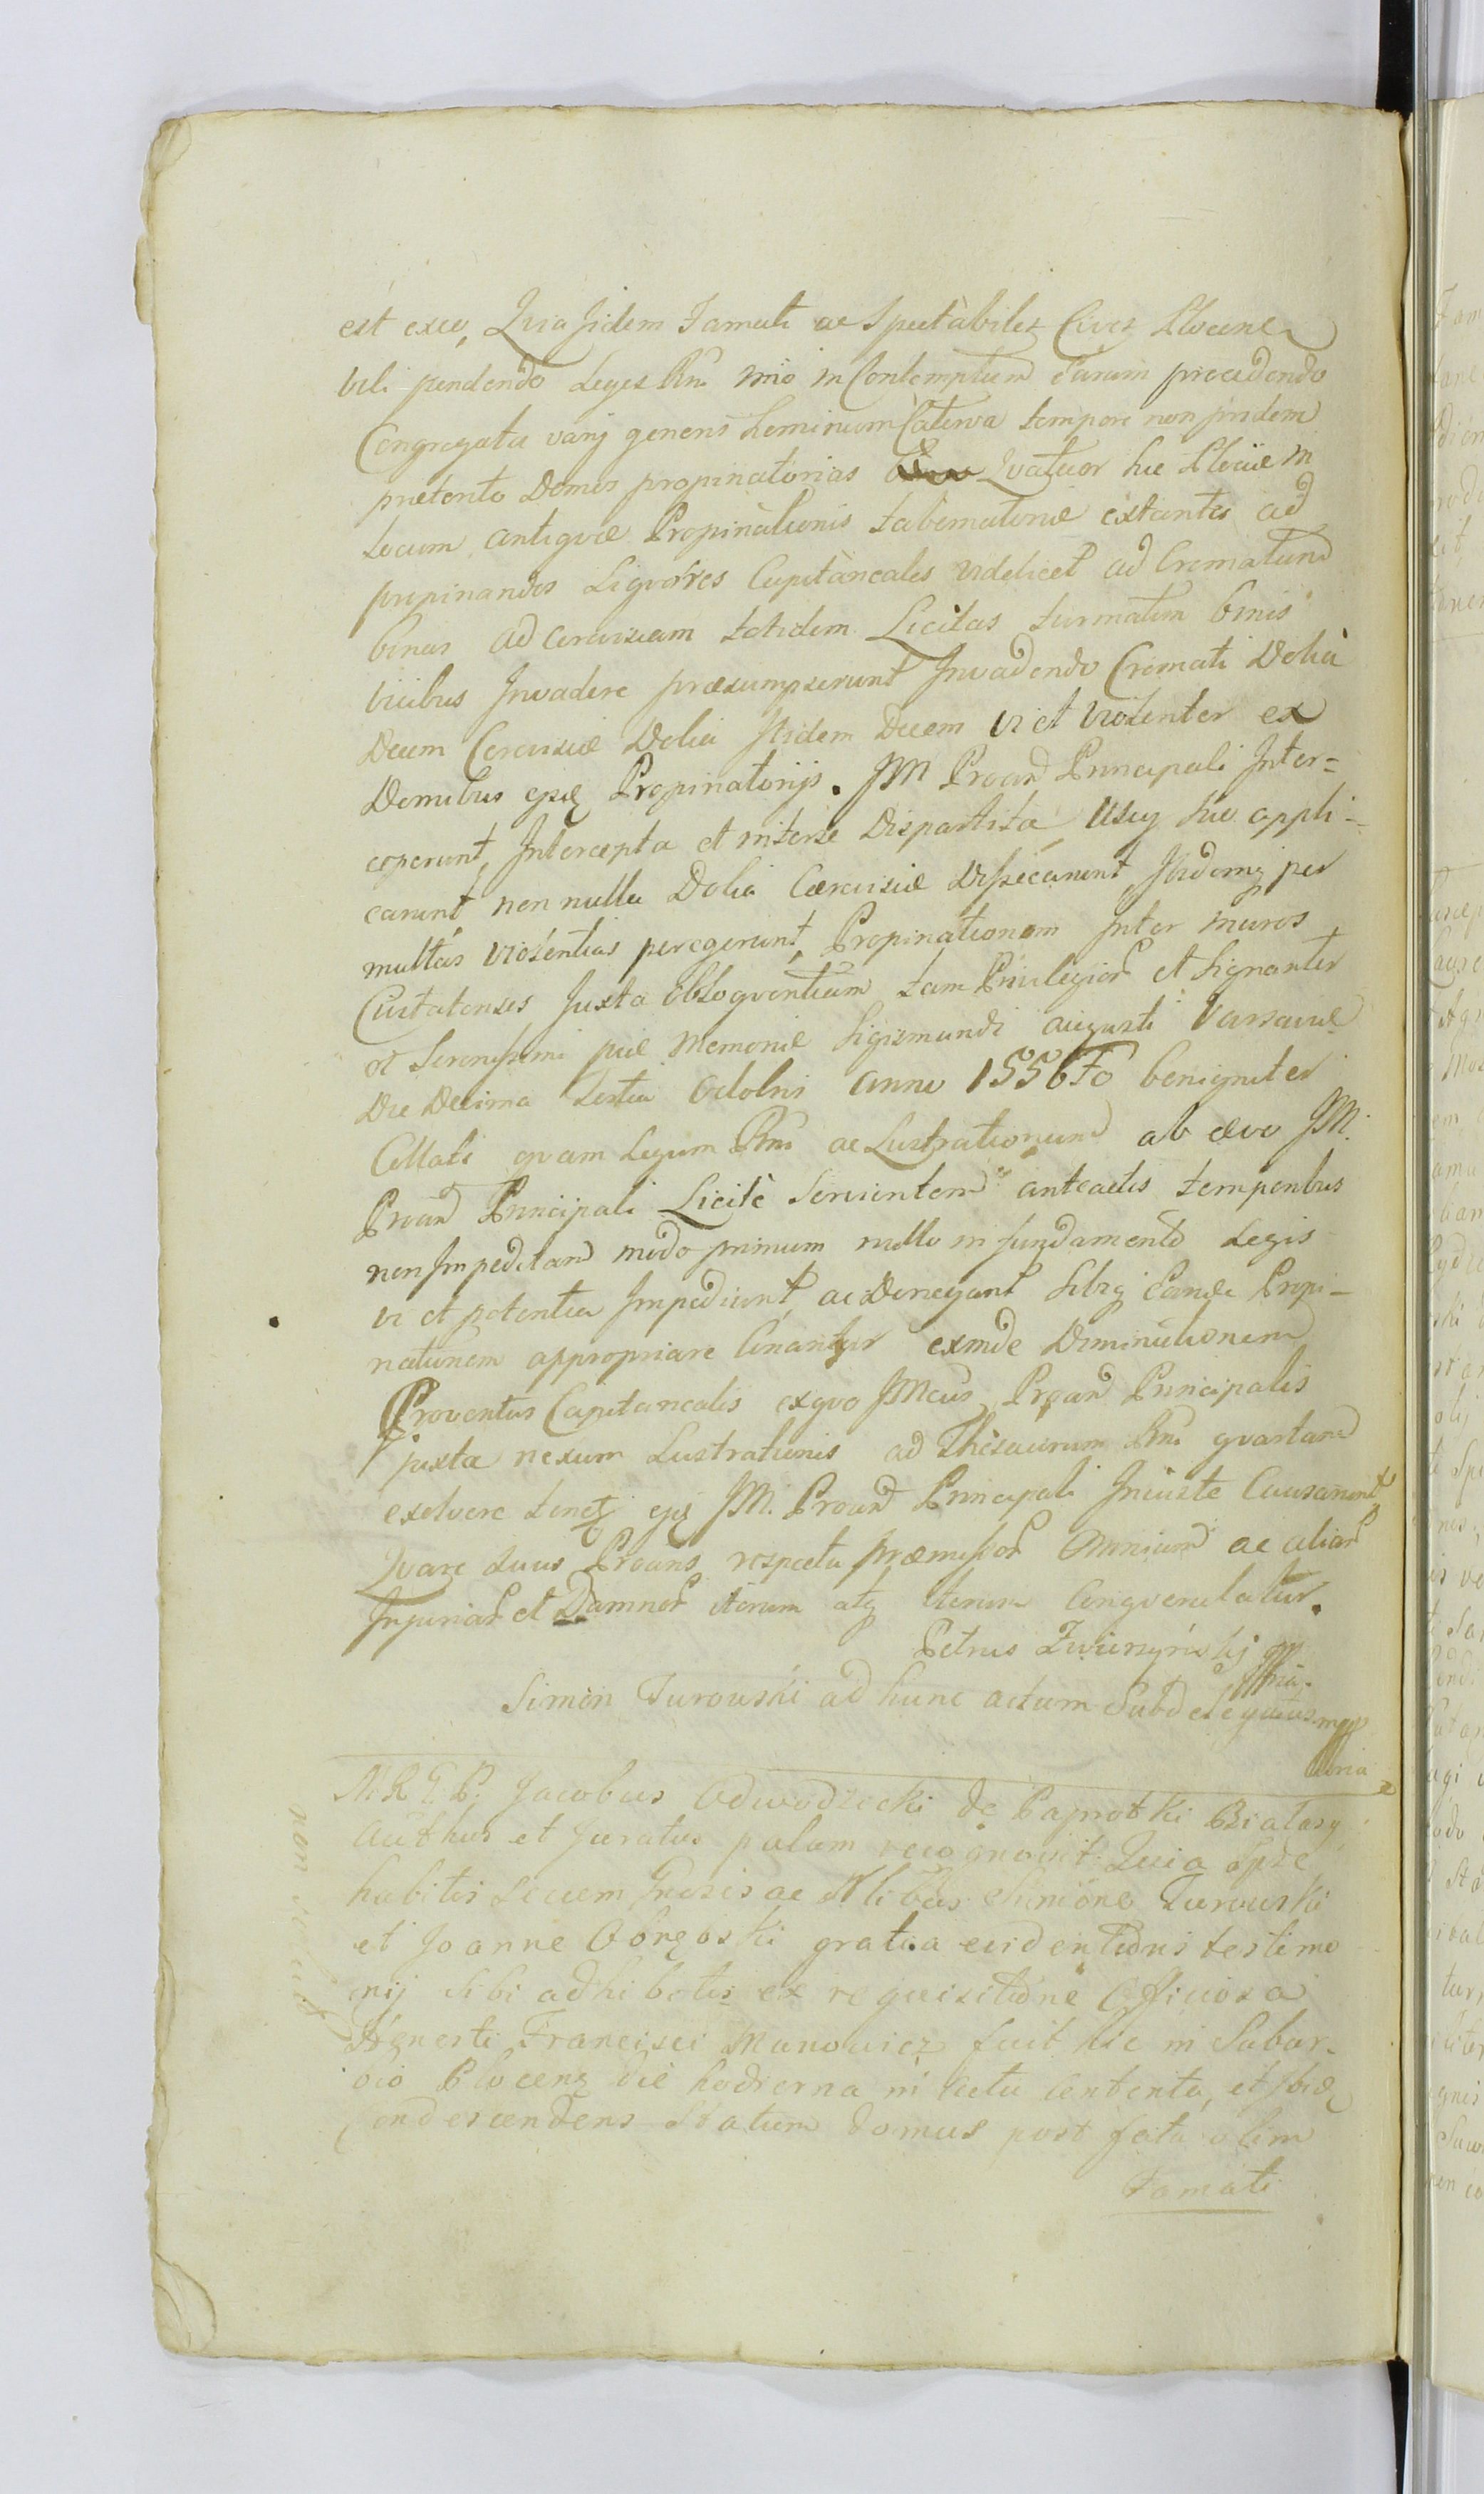 est exeo, Quia iidem Famati ac Spectabiles Cives Plocens
vili pendendo Leges Rni imo in Contemptum earum procedendo
Congregata varij generis hominum Caterva tempore non pridem
præterito Domos propinatorias Quatuor hic Plociæ in
Locum antiquæ Propinationis tabernatoriæ extantes ad
propinandos Liquores Capitaneales videlicet ad Crematum
binas ad cerevisiam totidem Licitas turmatim binis
vicibus Invadere præsumpserunt Invadendo Cremati Dolia
Decem Cerevisiæ Dolia itidem Decem vi et violenter ex
Domibus Propinatorijs. JM Proand Principali Inter=
ceperunt, Intercepta et interse Dispartita Usuq suo appli-
carunt, non nulla Dolia Cærevisiæ Ibidemq per
multas violentias peregerunt, Propinationem inter muros
Civitatenses Juxta obloquentiam tam Privilegior et Signanter
a Serenissimi piæ Memoriæ Sigismundi Augusti Varsaviæ
Die Decima Tertia Octobris Anno 1556to benigniter
Collati quam Legum Rni ac Lustrationum ab ævo JM.
Proand Principali Licite Servientem anteactis temporibus
non Impeditam modo primum nullo in fundamento Legis
vi et potentia Impediunt, ac Denegant Sibiq Eande Propi-
nationem appropriare Conantur exinde Diminutionem
Proventus Capitanealis exquo JMcus Proand Principalis
juxta nexum Lustrationis ad Thesaurum Rni quartam
exolvere JM. Proand Principali Iniuste Causarunt
Quare suus Proans respectu præmissor Omnium ac alior
Injuriar et Damnor iterum atq iterum Conqverulatur.
Petrus Zwierzyński mp
Simon Turowski ad hunc actum Subdelegatus mpp
M R G P. Jacobus Odwodzecki de Paprotki
Authus et Juratus palam recognovit. Quia Ipse
habitis secum ac Nlibus Simone Turowski
et Joanne Obrębski gratia evidentioris testimo
nij Sibi adhibitis ex requisitione Officiosa
Honesti Francisci Manowicz fuit hic in Subur-
bio Plocens die hodierna in actu contenta, et ibidę
Condescendens Statum domus post fata olim
Famati